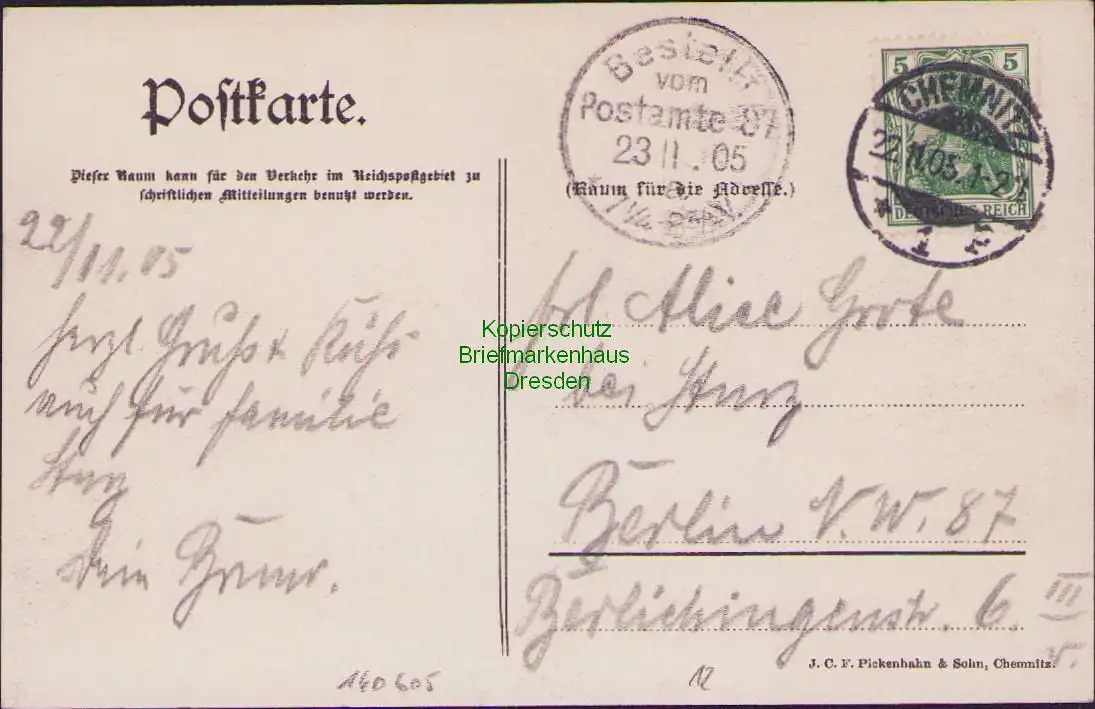 Postkarte.
Dieser Raum kann für den Verkehr im Reichspostgebiet zu
schriftlichen Mitteilungen benutzt werden.
22/11.05
herzl. Gruß & Kuß
auch für Familie
Dein
Bestellt
vom
Postamte 87
23 11.05
7¼-8¾V.
(Raum für die Adresse.)
5 5
DEUTSCHES REICH
CHEMNITZ
22.11.05.1-2
* 1
Frl. Alice Grote
bei Sturz
Berlin N.W. 87
Berlichingenstr. 6. III
v.
J. C. F. Pickenhahn & Sohn, Chemnitz.
140605
12
Kopierschutz
Briefmarkenhaus
Dresden